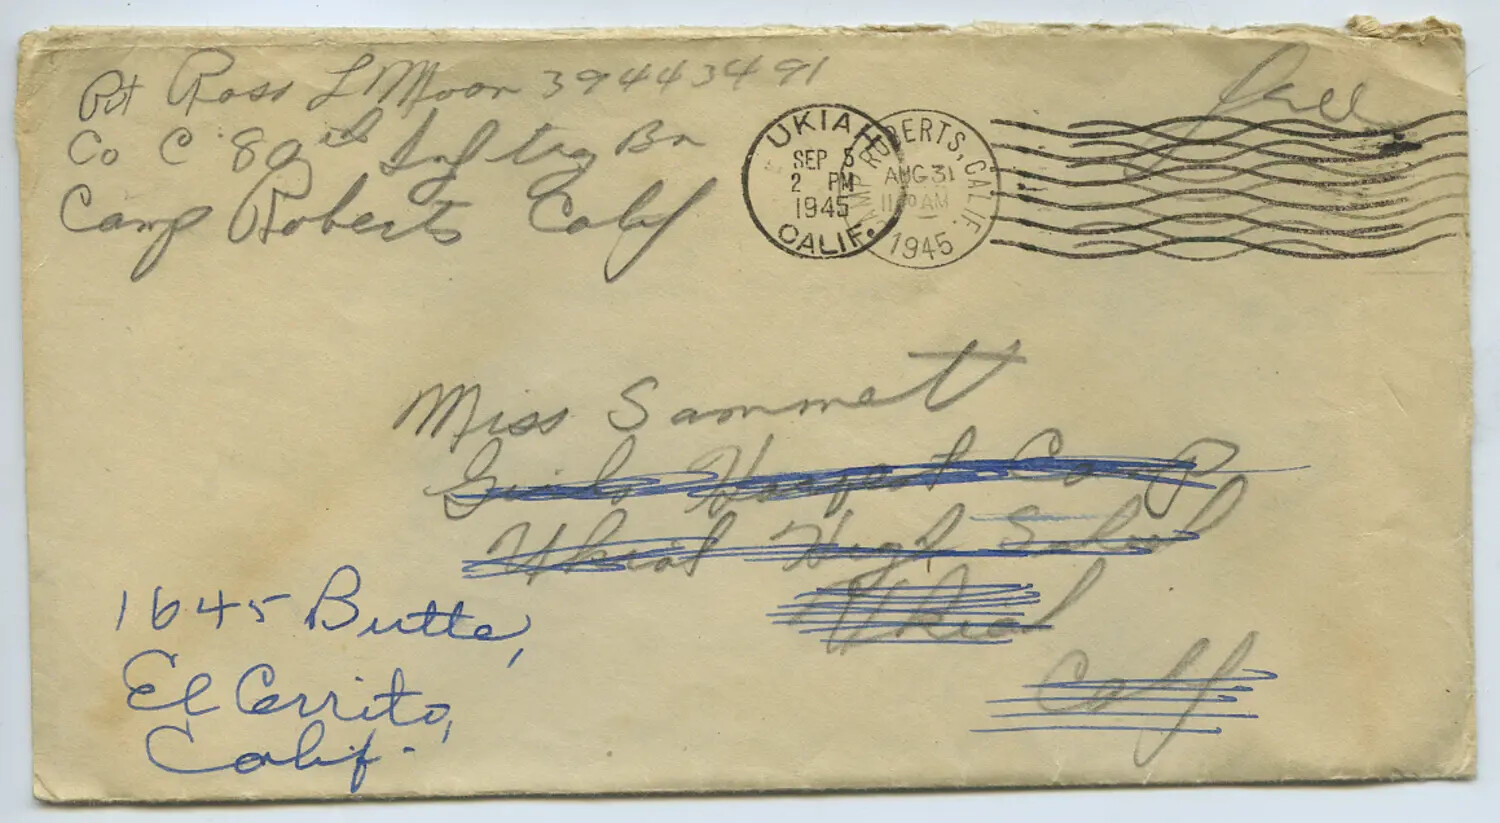 Pvt Ross L Moon 39443491
Co C 89th Inf trg Bn
Camp Roberts Calif
Free
UKIAH
SEP 5
2 PM
1945
CALIF.
CAMP ROBERTS, CALIF.
AUG 31
11 30 AM
1945
Miss Sammett
Girls Harvest Camp
Ukiah High School
Ukiah
Calf
1645 Butte,
El Cerrito,
Calif.